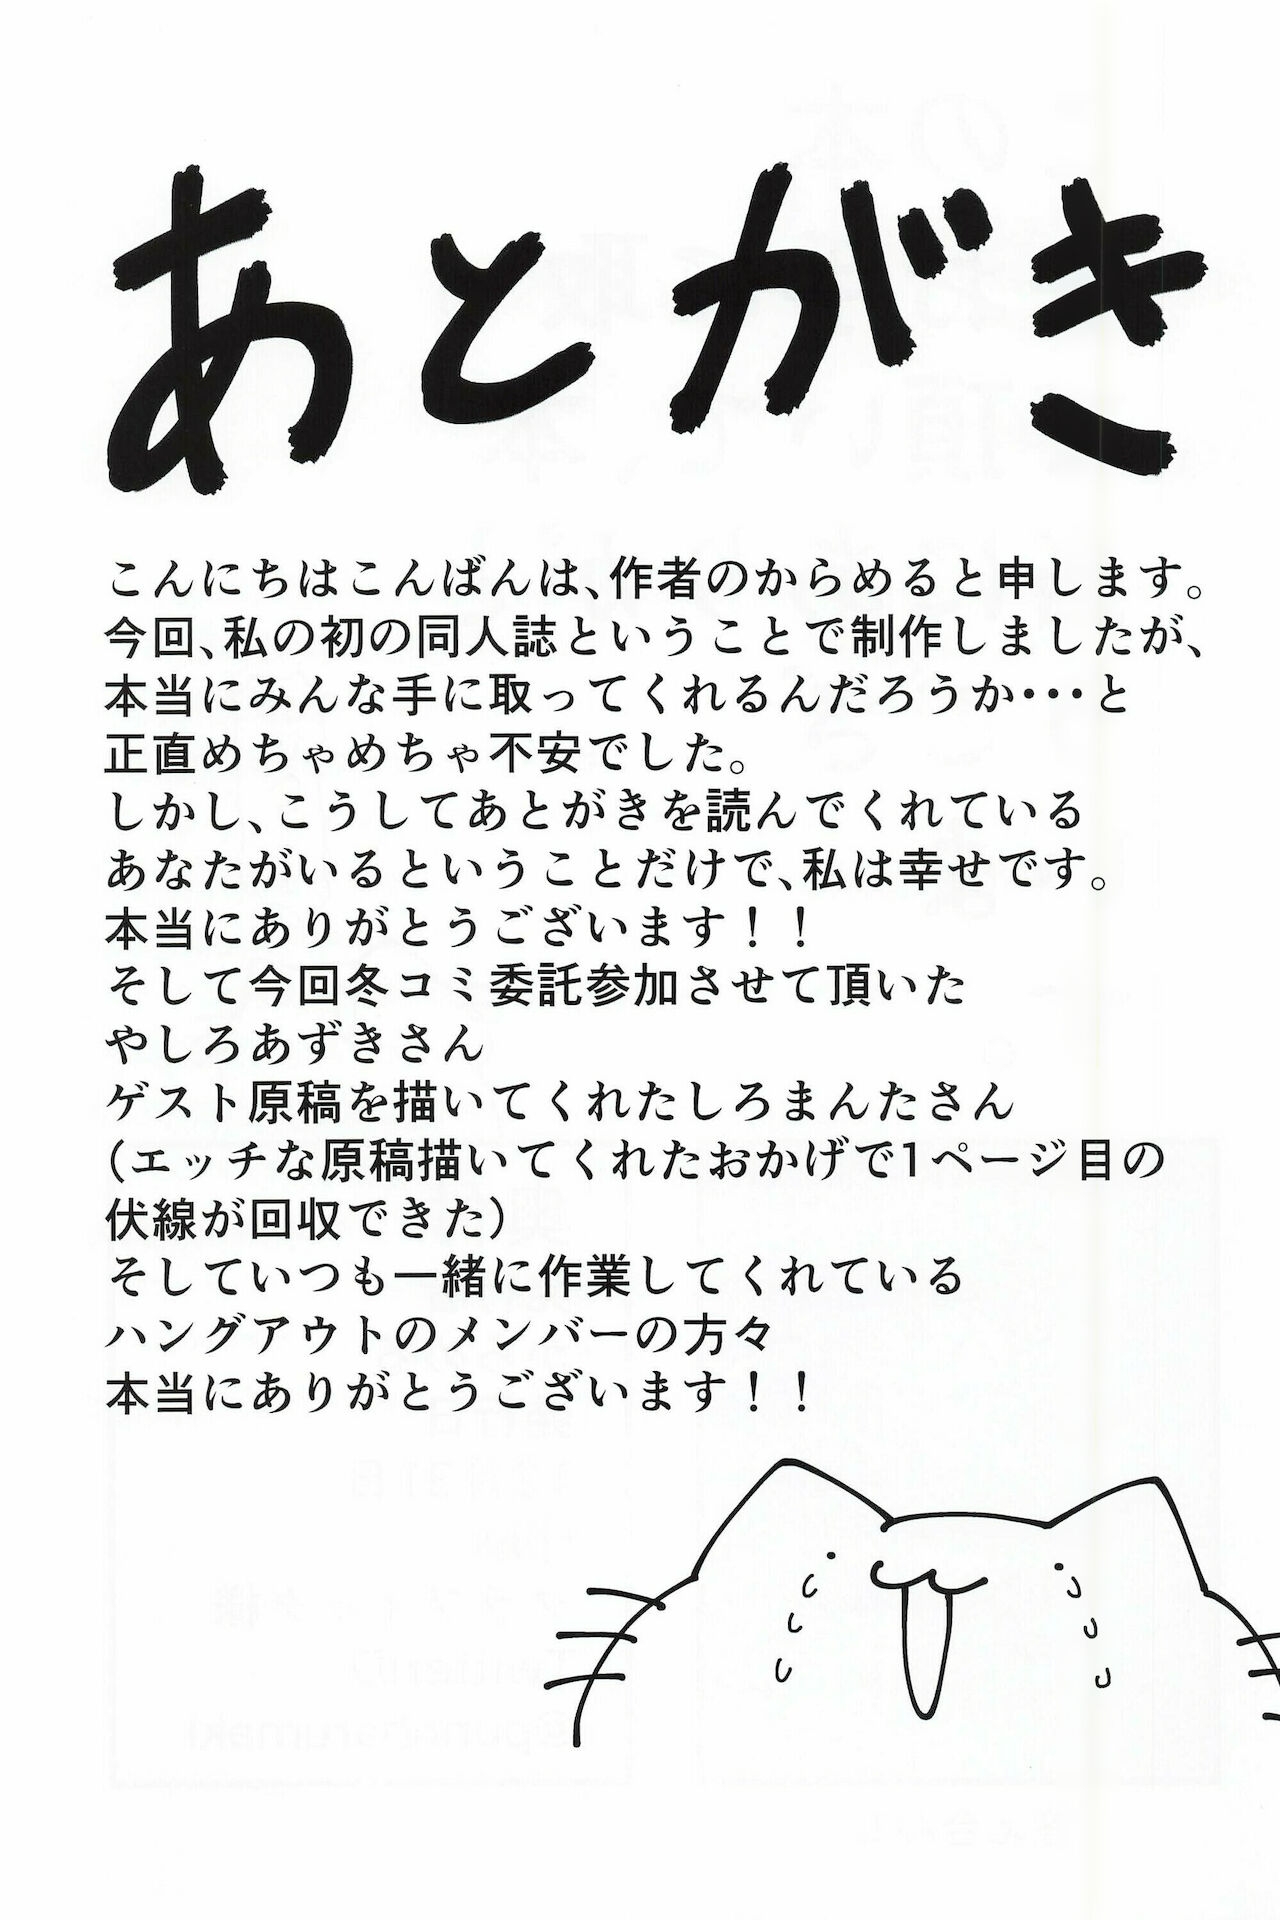 あとがき
こんにちはこんばんは、作者のからめると申します。
今回、私の初の同人誌ということで制作しましたが、
本当にみんな手に取ってくれるんだろうか・・・と
正直めちゃめちゃ不安でした。
しかし、こうしてあとがきを読んでくれている
あなたがいるということだけで、私は幸せです。
本当にありがとうございます！！
そして今回冬コミ委託参加させて頂いた
やしろあずきさん
ゲスト原稿を描いてくれたしろまんたさん
（エッチな原稿描いてくれたおかげで1ページ目の
伏線が回収できた）
そしていつも一緒に作業してくれている
ハングアウトのメンバーの方々
本当にありがとうございます！！